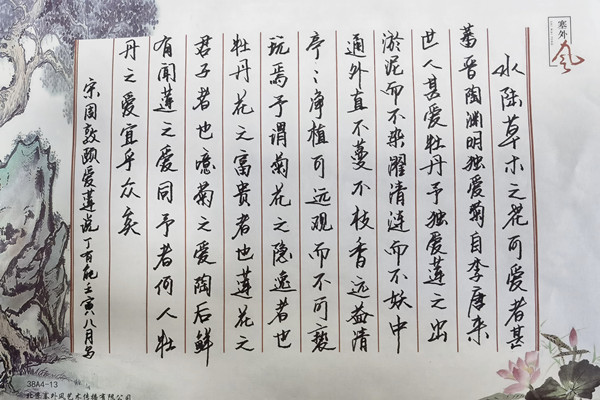 塞外风
水陆草木之花可爱者甚
蕃晋陶渊明独爱菊自李唐来
世人甚爱牡丹予独爱莲之出
淤泥而不染濯清涟而不妖中
通外直不蔓不枝香远益清
亭〻净植可远观而不可亵
玩焉予谓菊花之隐逸者也
牡丹花之富贵者也莲花之
君子者也噫菊之爱陶后鲜
有闻莲之爱同予者何人牡
丹之爱宜乎众矣
宋周敦颐爱莲说丁壬寅八月书
38A4-13
北京塞外风艺术传播有限公司